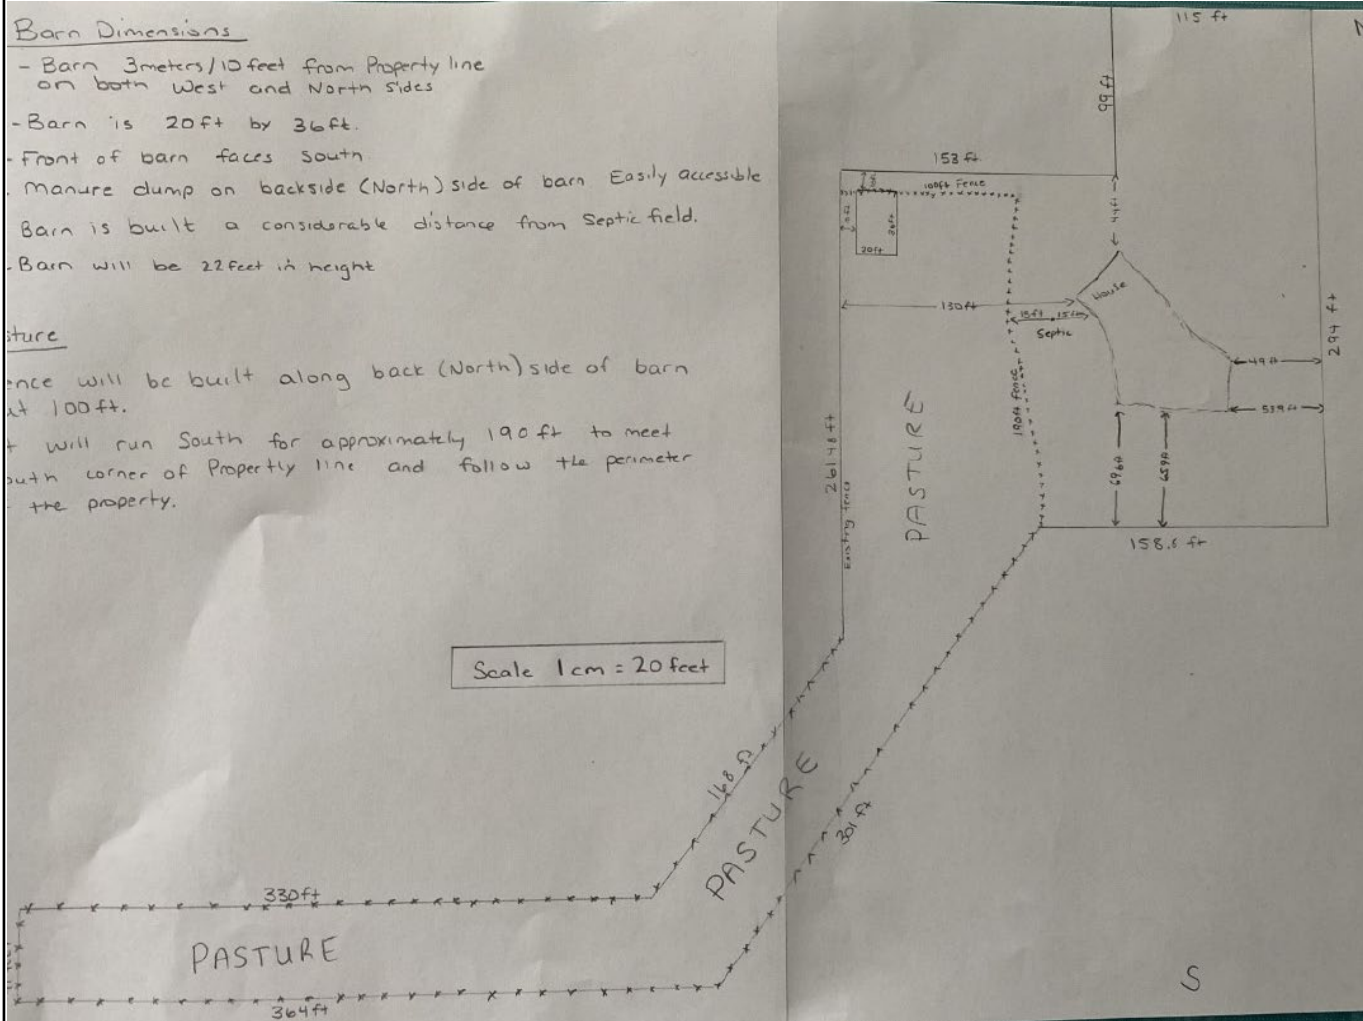 Barn Dimensions
- Barn 3meters/10feet from Property line
on both West and North sides
- Barn is 20ft by 36ft.
- Front of barn faces South
. Manure dump on backside (North) side of barn Easily accessible
Barn is built a considerable distance from Septic field.
- Barn will be 22feet in height
sture
ence will be built along back (North) side of barn
ut 100ft.
t will run South for approximately 190ft to meet
outh corner of Propertly line and follow the perimeter
the property.
Scale 1cm = 20feet
115 ft
99ft
153 ft.
100ft Fence
36ft
20ft
44ft
House
130ft
15ft 15ft
Septic
190ft Fence
49ft
294 ft
261.48ft
Existing fence
PASTURE
158.6 ft
168 ft
PASTURE
301ft
330ft
PASTURE
364ft
S